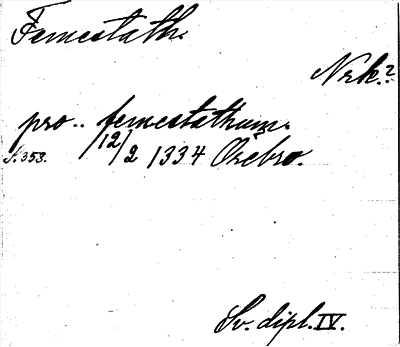 Femestath.
Nrk.?
pro .. femestathum.
S. 353. 12/2 1334 Örebro.
Sv. dipl. IV.